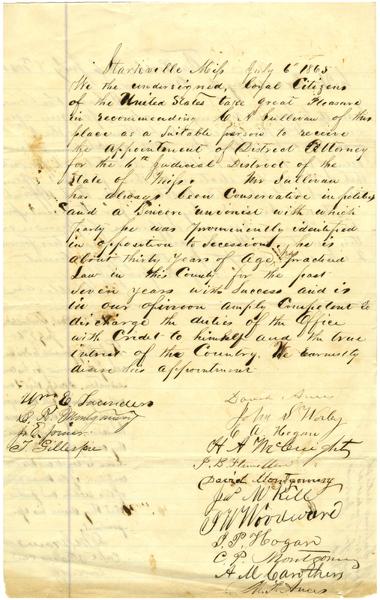 Starkville Miss July 6th 1865
We the undersigned, Loyal Citizens
of the United States take great Pleasure
in recommending C A Sullivan of this
place as a Suitable person to receive
the Appointment of District Attorney
for the 6th Judicial District of the
State of Miss. Mr Sullivan
has always been Conservative in politics
and a Sincere unionist with which
party he was prominently identified
in opposition to Secession. he is
about thirty Years of Age, has practiced
Law in this County for the past
Seven years with Success and is
in our opinion amply Competent to
discharge the duties of the Office
with Credit to himself and the true
interest of the Country. We earnestly
desire his appointment
Wm E Saunders
C. R. Montgomery
J. E. Joiner
T Gillespie
David Ames
John S
C A Hogan
H A McCreight
J. B. Hamilton
David Montgomery
Jas McKell
J W Woodward
J. P. Hogan
C. P. Montgomery
A. M. Carothers
Ames